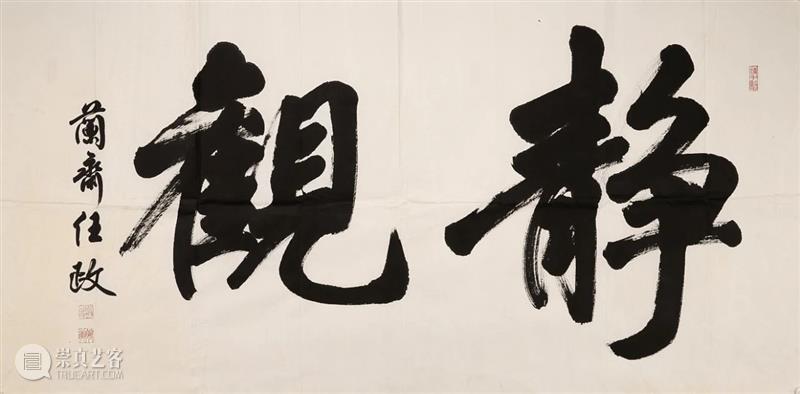 静觀
蘭齋任政
崇真艺客
TRUEART.COM